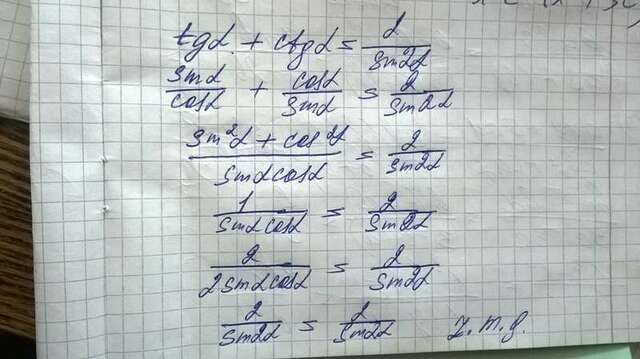 tgα + ctgα = 2/sin2α
sinα/cosα + cosα/sinα = 2/sin2α
(sin²α + cos²α)/(sinα cosα) = 2/sin2α
1/(sinα cosα) = 2/sin2α
2/(2sinα cosα) = 2/sin2α
2/sin2α = 2/sin2α ч.т.д.